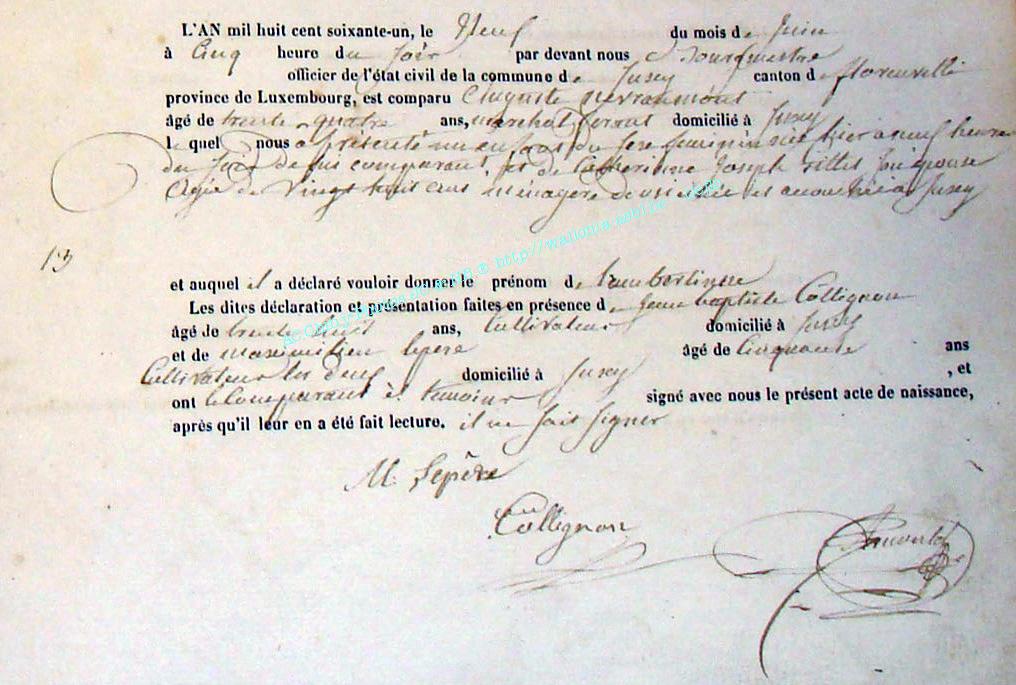 L'AN mil huit cent soixante-un, le Neuf du mois de Juin
à Cinq heure du Soir par devant nous Bourgmestre
officier de l'état civil de la commune de Jusey canton de florenville
province de Luxembourg, est comparu Auguste nevraumont
âgé de trente quatre ans, marchal ferant domicilié à Jusey
lequel nous a présenté un enfant du sexe feminin née hier a neuf heure
du Soir de lui comparant et de Catherinne Joseph Gilles Son épouse
Agée de Vingt huit ans menagere domiciliée et accouchée a Jusey
13
et auquel il a déclaré vouloir donner le prénom de lambertinne
Les dites déclaration et présentation faites en présence de Jean baptiste Collignon
âgé de trente huit ans, Cultivateur domicilié à Jusey
et de maximilien lepere âgé de Cinquante ans
Cultivateur les deux domicilié à Jusey , et
ont le Comparant et temoins signé avec nous le présent acte de naissance,
après qu'il leur en a été fait lecture. il ne sait signer
M. Lepère
Collignon
http://wallonia-asbl.be